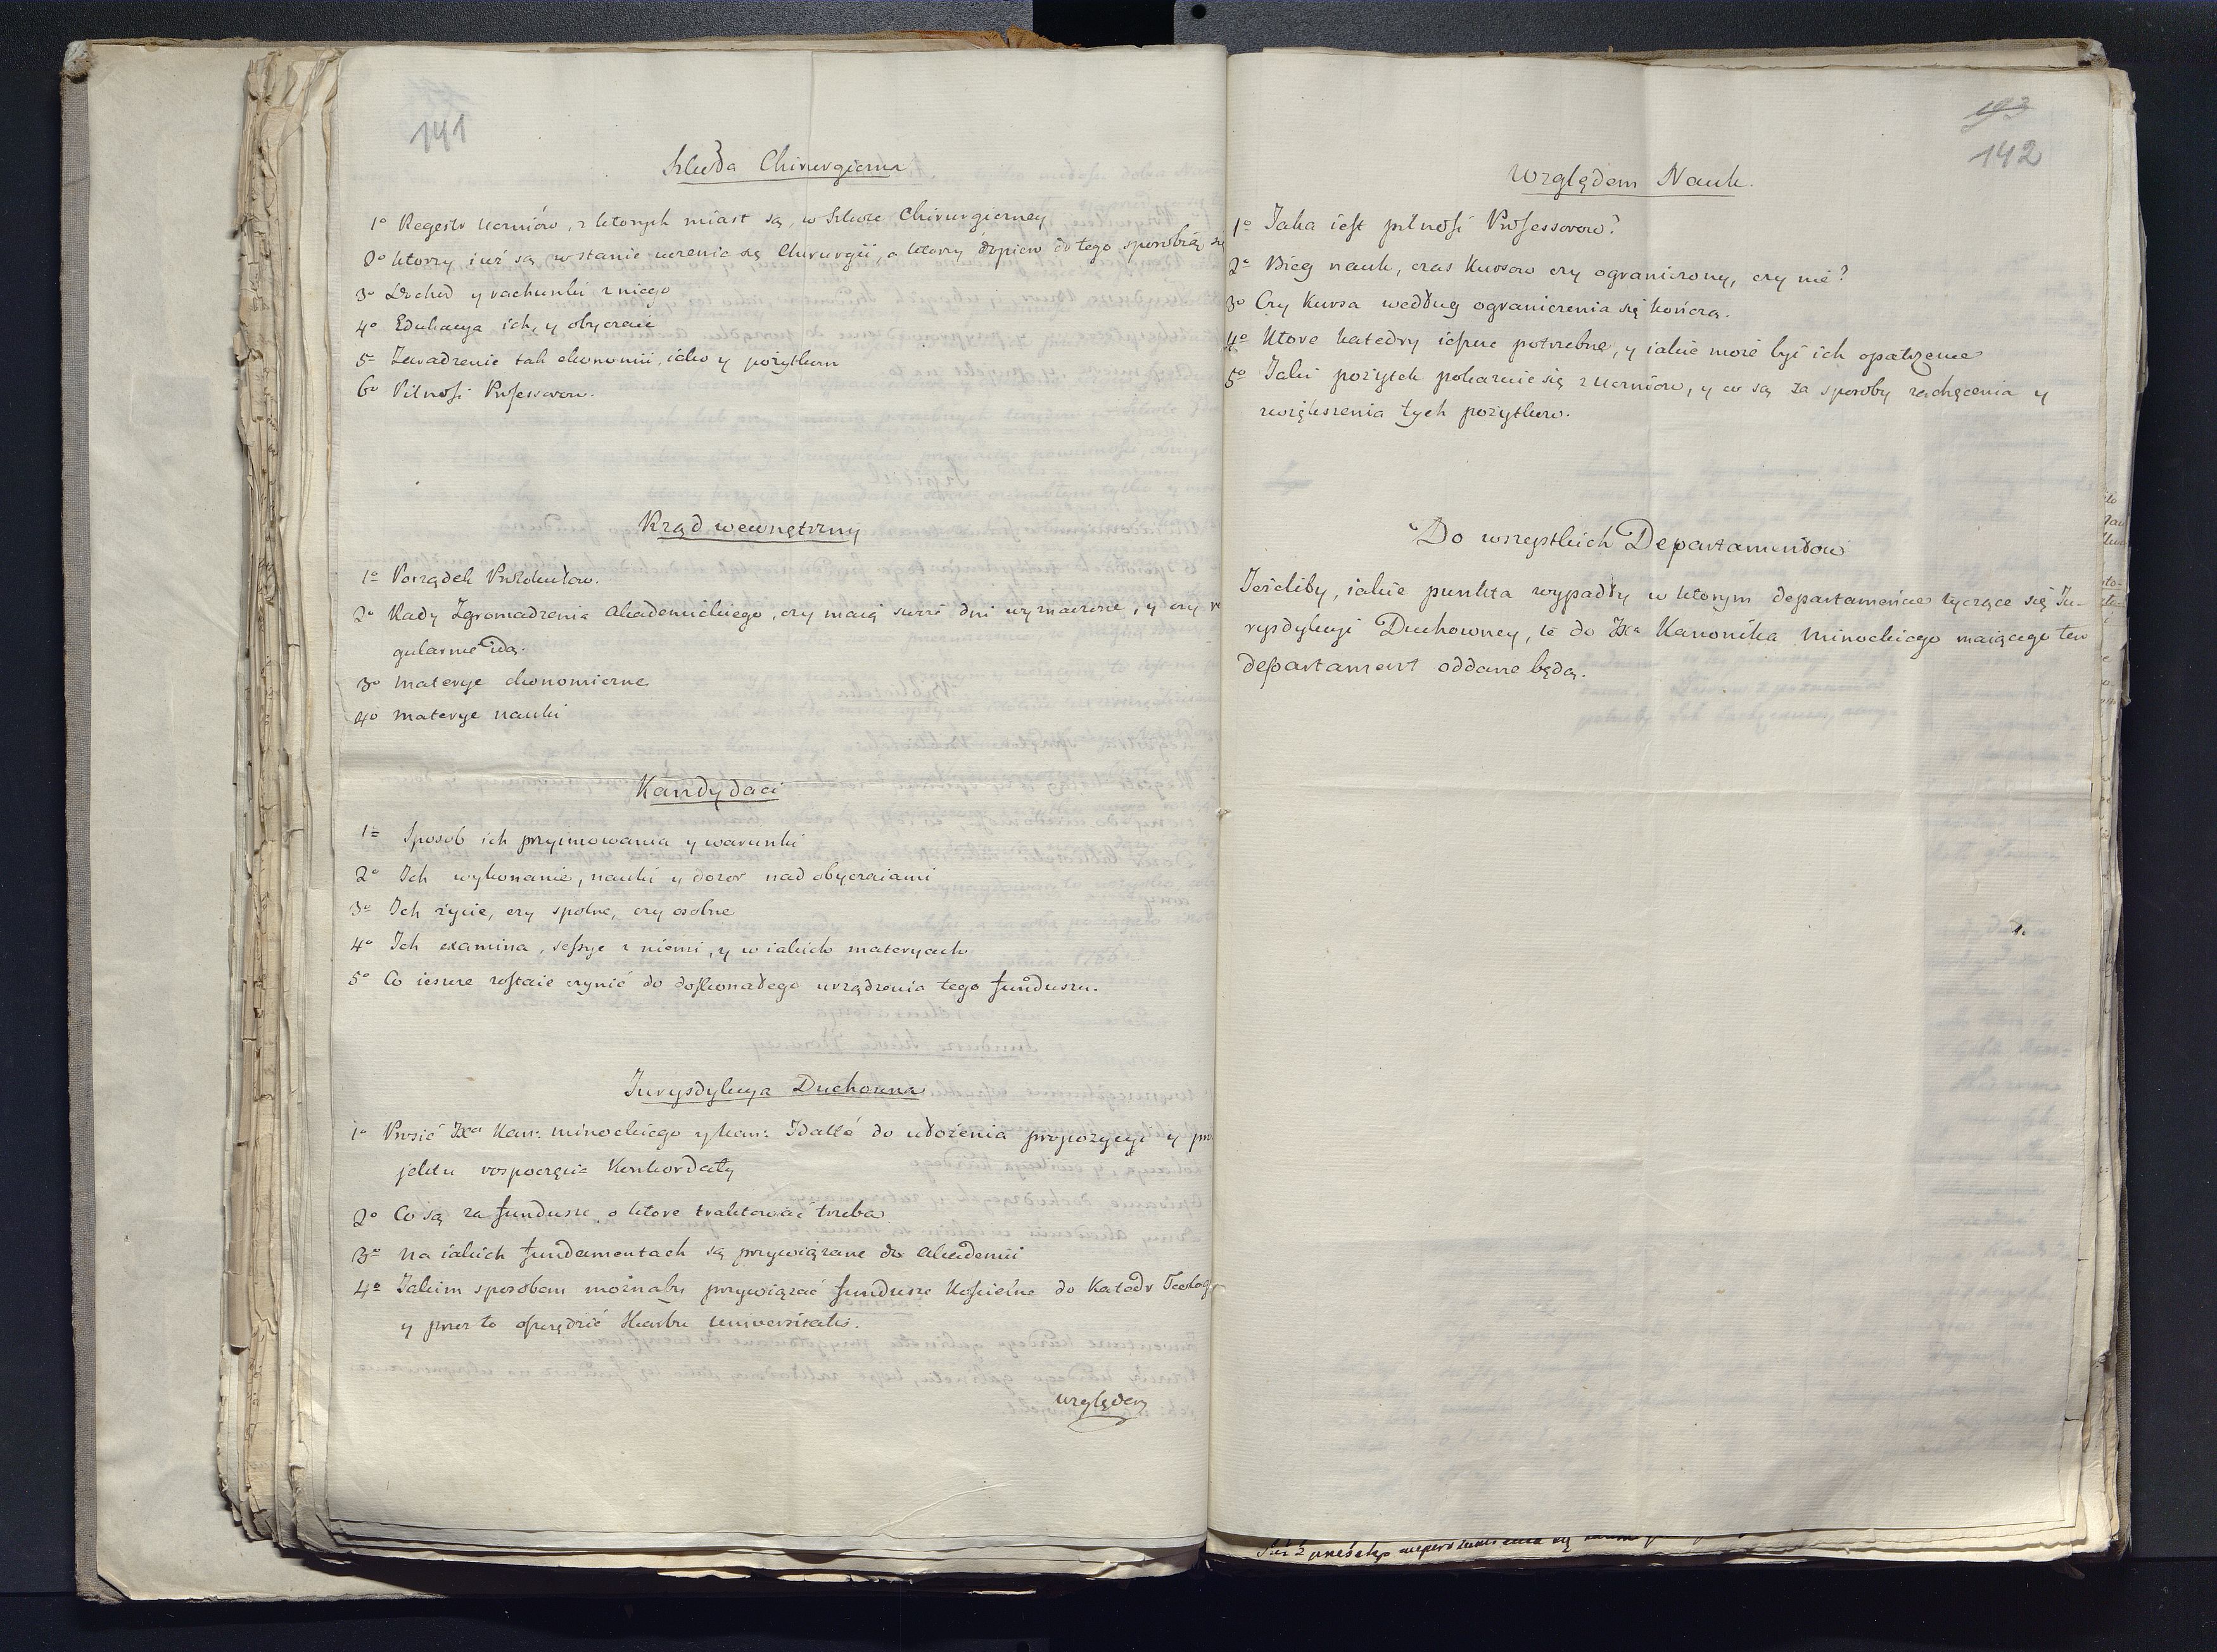 141
Szkoła Chirurgiczna
1º Regestr uczniów, z ktorych miast są, w Szkole Chirurgiczney
2º ktorzy iuż są w stanie uczenia się Chirurgii, a ktorzy dopiero do tego sposobią się
3º Dochod y rachunki z niego
4º Edukacya ich, y obyczaie
5º Zawadzenie tak ekonomii, iako y pożytkom
6º Pilność Professorow.
Rząd wewnętrzny
1º Porządek Protokułow.
2º Rady Zgromadzenia Akademickiego, czy maią swoie dni wyznaczone, y czy re
gularnie idą.
3º materye ekonomiczne
4º materye nauki
Kandydaci
1º Sposob ich przyimowania y warunki
2º Ich wykonanie, nauki y dozor nad obyczaiami
3º Ich życie, czy spolne, czy osobne
4º Ich examina, sessye z niemi, y w iakich materyach
5º Co ieszcze zostaie czynić do doskonałego urządzenia tego funduszu.
Iurysdykcya Duchowna
1º Prosić Jxa Kan: Minockiego y kan: Idatte do ułożenia propozycyi y pro
jektu rozpoczęcia Konkordaty
2º Co są za fundusze o ktore traktować trzeba
3º na iakich fundamentach są przywiązane do Akademii
4º Iakim sposobem możnaby przywiązać fundusze Kościelne do Katedr Teolog
y przez to oszczędzić Skarbu Universitatis.
względem
193
142
Względem Nauk.
1º Iaka iest pilność Professorow?
2º Bieg nauk, czas Kursow czy ograniczony, czy nie?
3º Czy Kursa według ograniczenia się kończą.
4º Ktore katedry ieszcze potrzebne, y iakie może być ich opatrzenie
5º Iaki pożytek pokazuie się z uczniów, y co są za sposoby zachęcenia y
zwiększenia tych pożytkow.
Do wszystkich Departamentow
Ieśliby, iakie punkta wypadły w ktorym departamencie tyczące się Iu-
rysdykcyi Duchowney, te do Jxa Kanonika Minockiego maiącego ten
departament oddane będą.